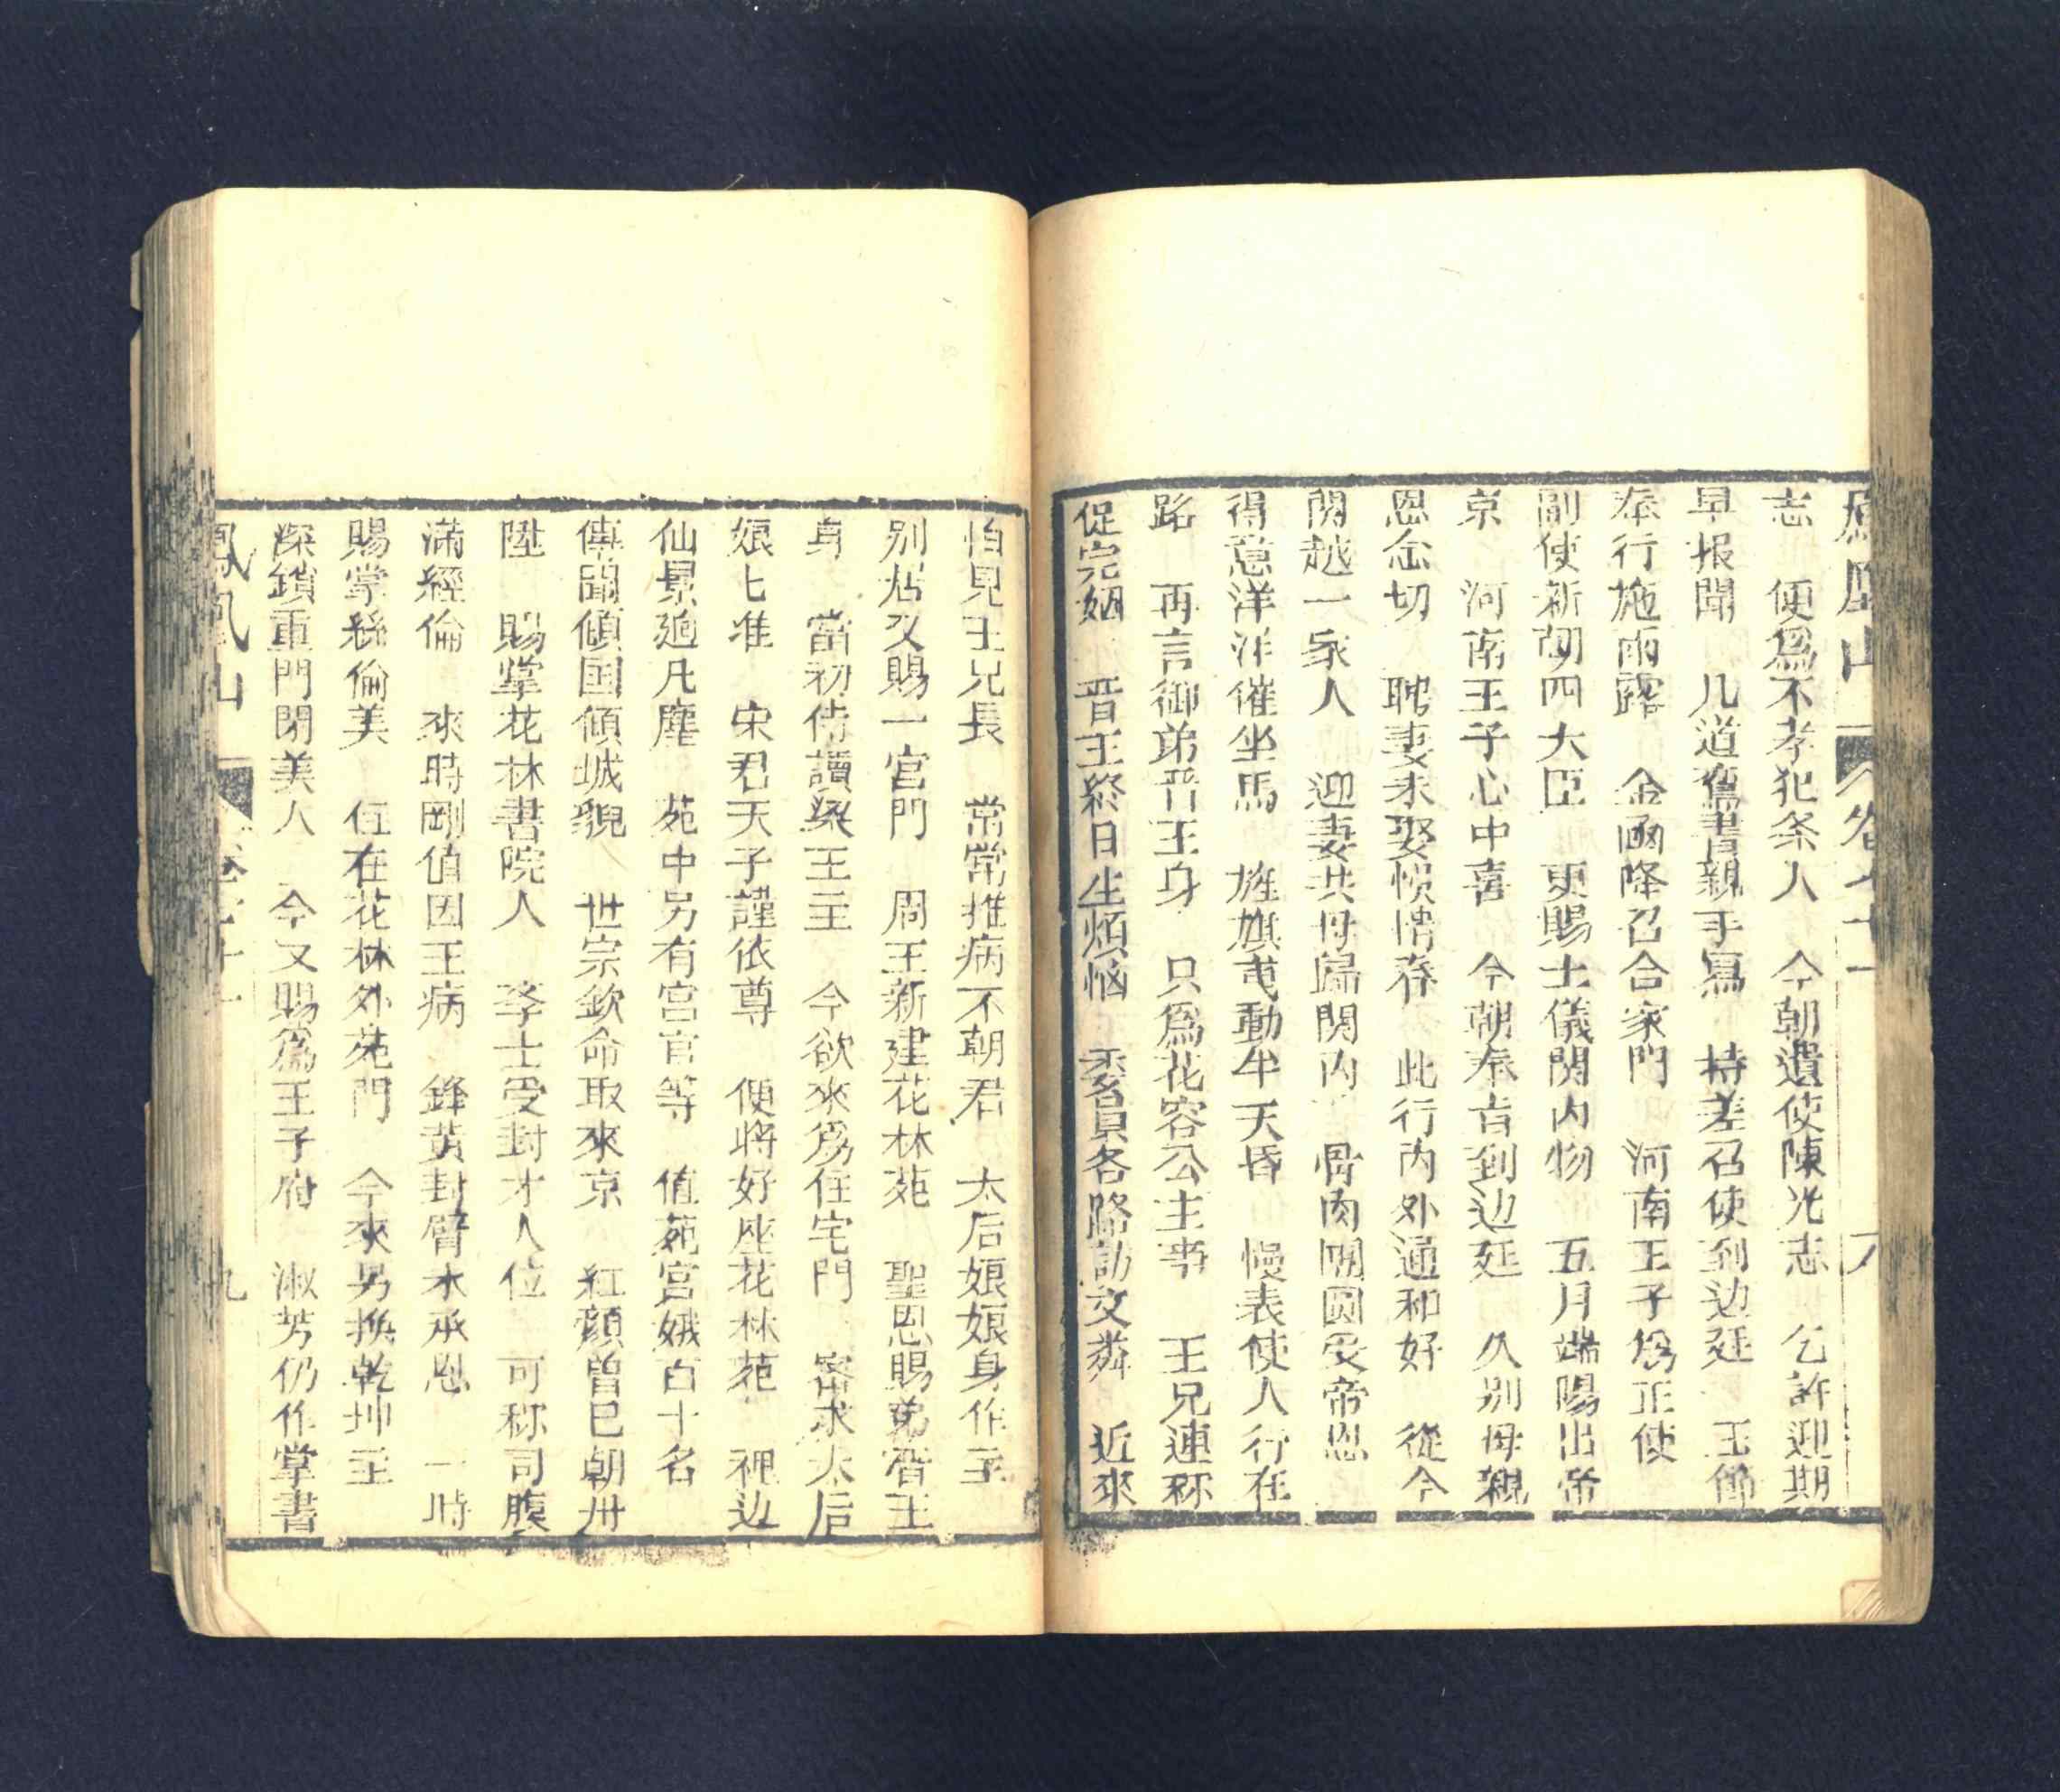 鳳凰山 卷七十一 八
志 便爲不孝犯条人 今朝遺使陳光志 乞許迎期
早报聞 几道舊書親手寫 持差召使到边廷 王命
奉行施雨露 金函降召合家門 河南王子為正使
副使新朝四大臣 更賜土儀関内物 五月端陽出帝
京 河南王子心中喜 今朝奉旨到边廷 久别母親
恩念切 聘妻未娶恨情存 此行内外通和好 從今
関越一家人 迎妻共母歸関内 骨肉團圆受帝恩
得意洋洋催坐馬 旌旗曵動半天昏 慢表使人行在
路 再言御弟晋王身 只爲花容公主事 王兄連称
促完姻 晋王終日生煩惱 委員各路訪文粦 近來
怕見王兄長 常常推病不朝君 太后娘娘身作主
别居又賜一宫門 周王新建花林苑 聖恩賜弟晋王
身 當初侍讀梁王主 今欲來爲住宅門 密求太后
娘匕准 宋君天子謹依尊 便將好座花林苑 裡边
仙景逈凡塵 苑中另有宫官等 值苑宫娥百十名
傳聞傾国傾城貌 世宗欽命取來京 紅顔曾已朝卅
陞 賜掌花林書院人 李士受封才人位 可称司腹
滿經倫 來時剛值因王病 鋒黄封臂未承恩 一時
賜掌絲倫美 伍在花林外苑門 今來男換乾坤主
深鎖重門閉美人 今又賜爲王子府 淑芳仍作掌書
鳳凰山 卷七十一 九